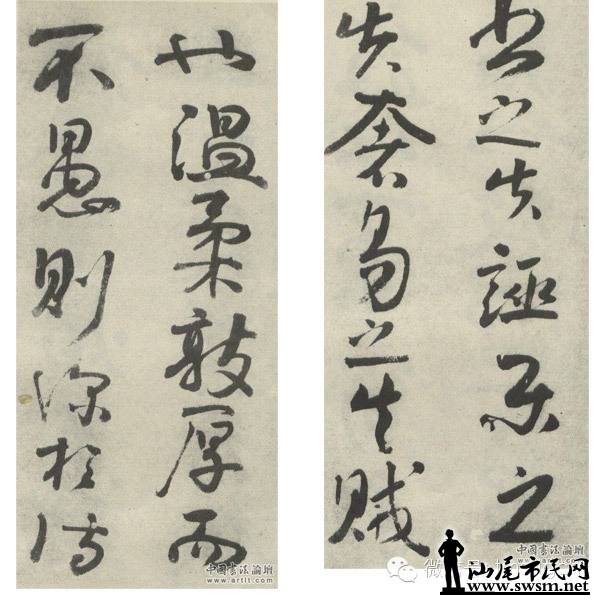 書之失誣樂之
失奢易之失賊
也溫柔敦厚而
不愚則深於詩
中国書法論壇
www.artit.com
中国書法論壇
微
汕尾市民网
www.swsm.net